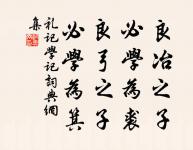 良冶之子
必學為裘
良弓之子
必學為箕
礼記學記詞典網
集